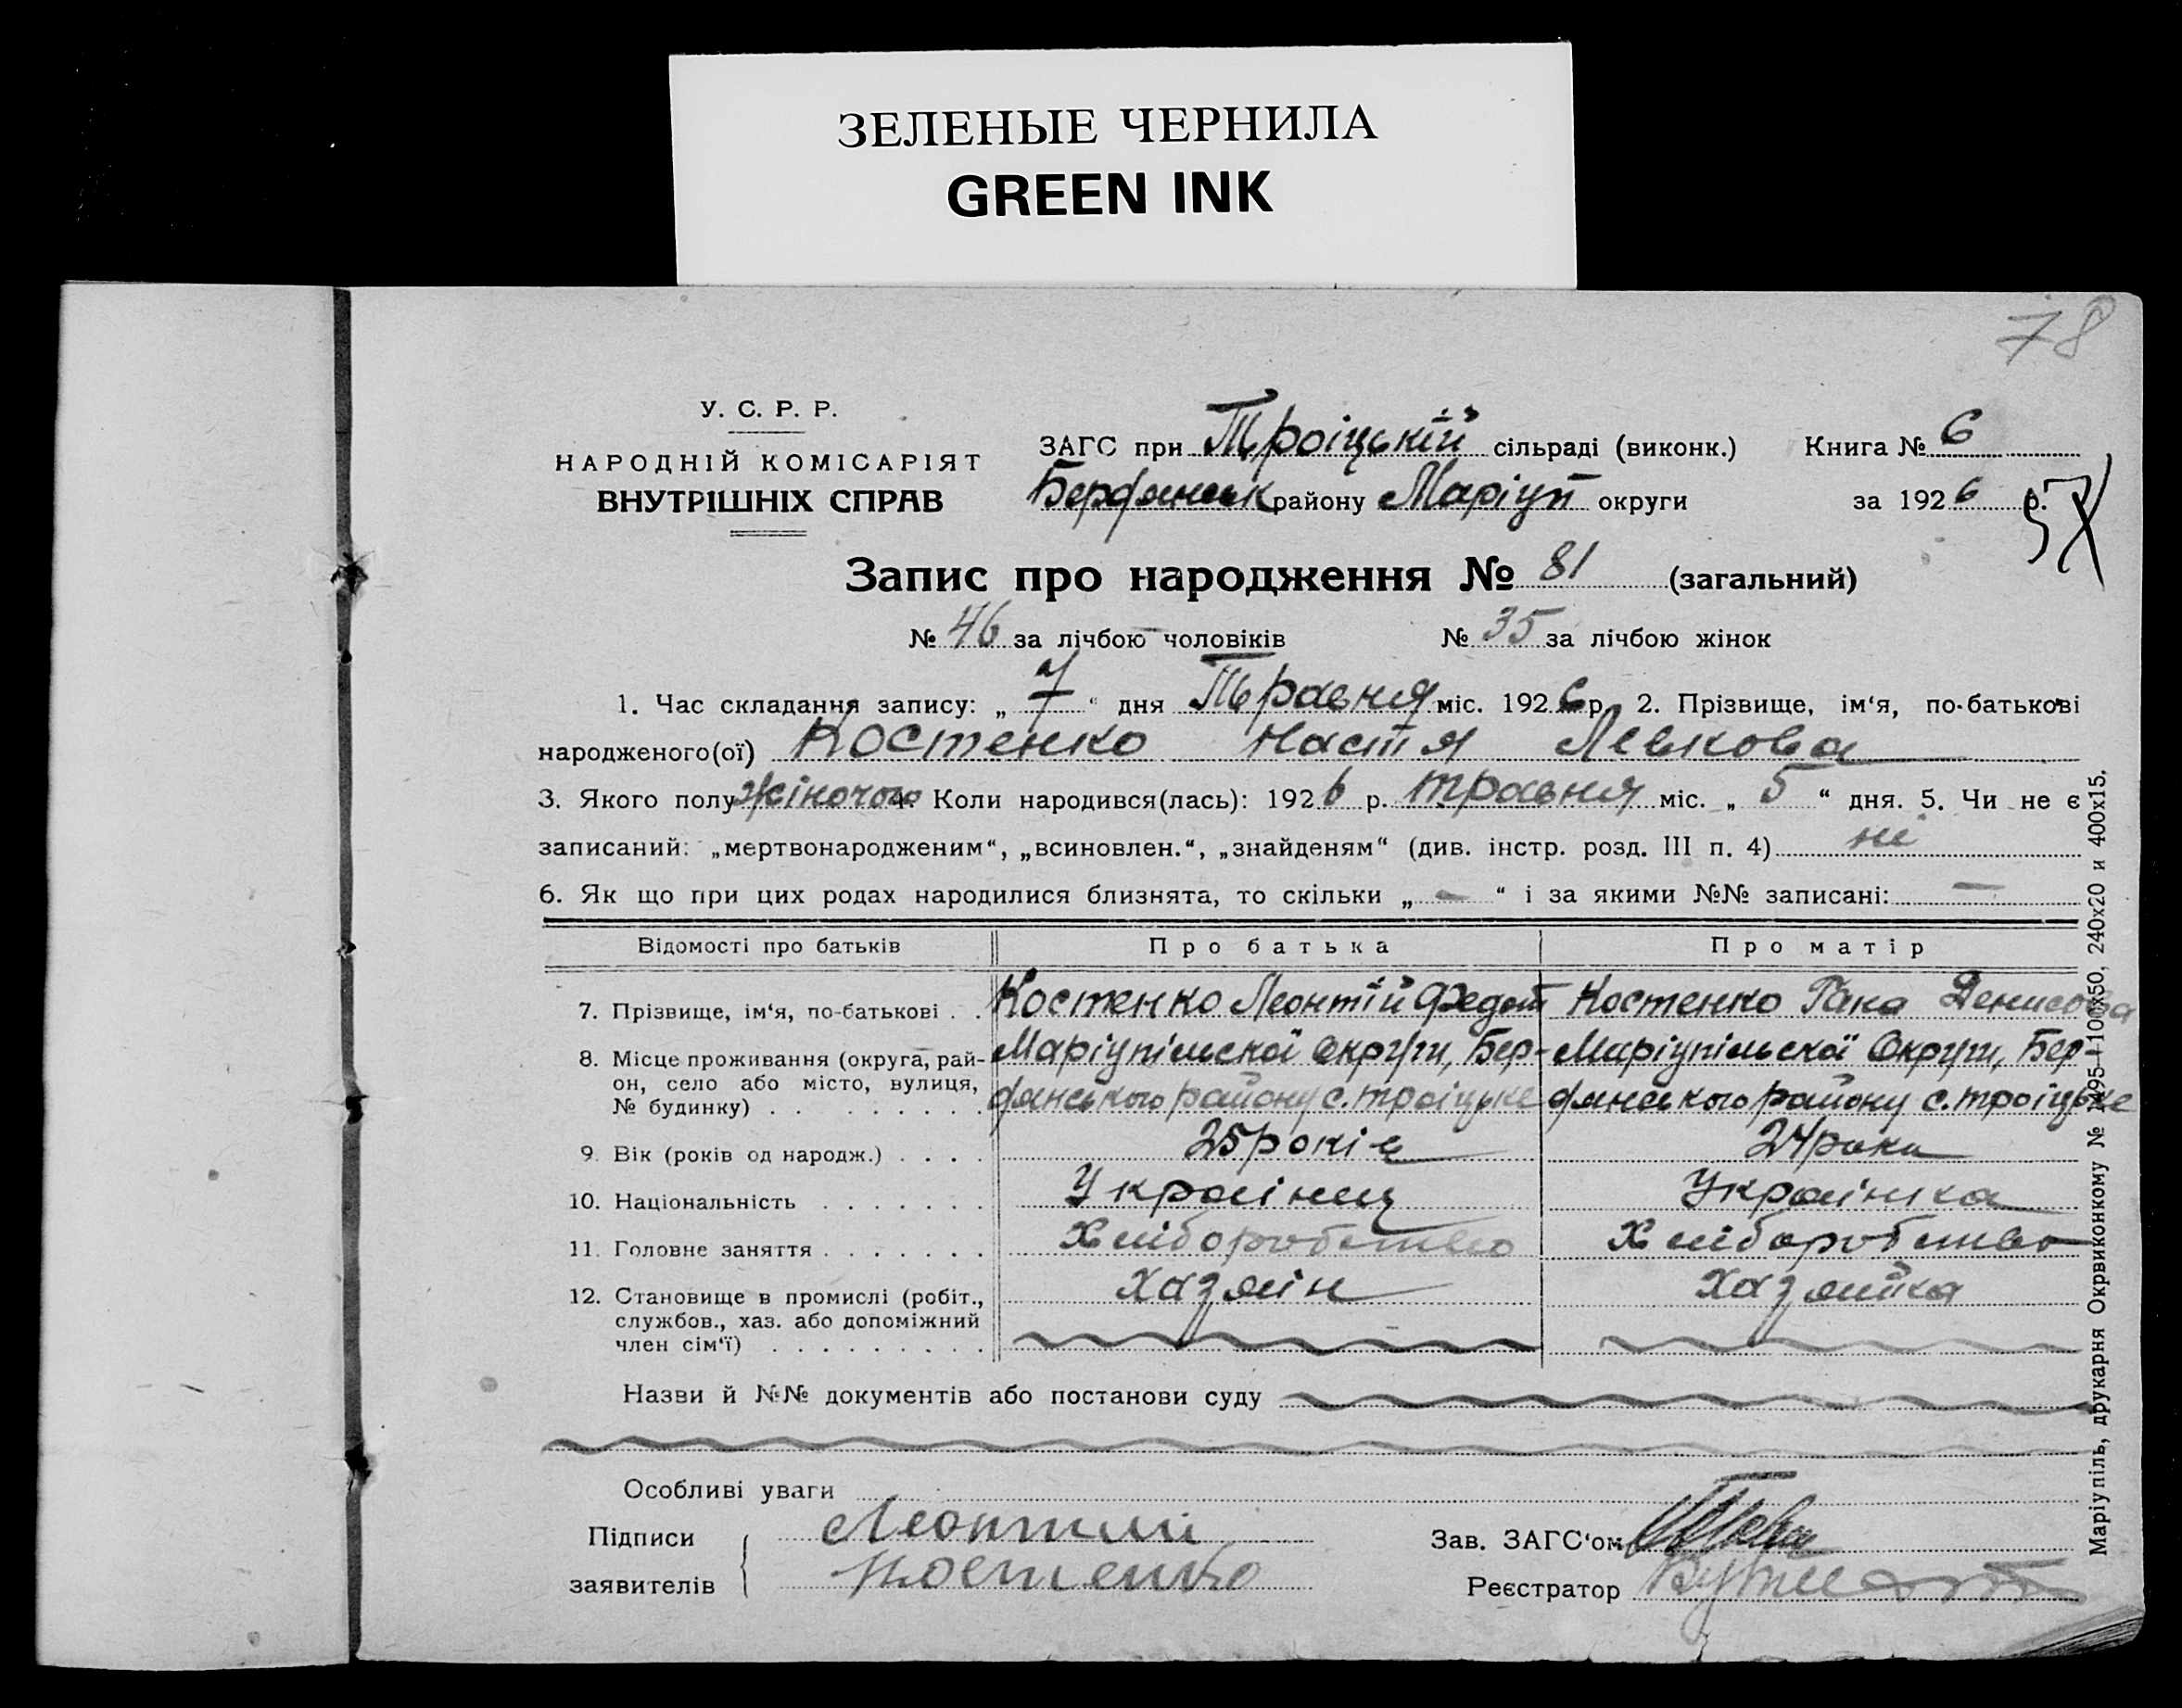 ЗЕЛЕНЫЕ ЧЕРНИЛА
GREEN INK
78
У. С. Р. Р.
НАРОДНІЙ КОМІСАРІЯТ
ВНУТРІШНІХ СПРАВ
ЗАГС при Троіцькій сільраді (виконк.) Книга № 6
Бердянськ району Маріуп округи за 1926 р.
Запис про народження № 81 (загальний)
№ 46 за лічбою чоловіків № 35 за лічбою жінок
1. Час складання запису: „ 7 “ дня Травня міс. 1926 р. 2. Прізвище, ім‘я, по-батькові
народженого(ої) Костенко Настя Левкова
3. Якого полу жіночого 4. Коли народився(лась): 1926 р. травня міс. „ 5 “ дня. 5. Чи не є
записаний: „мертвонародженим“, „всиновлен.“, „знайденям“ (див. інстр. розд. III п. 4) ні
6. Як що при цих родах народилися близнята, то скільки „ — “ і за якими №№ записані: —
Відомості про батьків Про батька Про матір
7. Прізвище, ім‘я, по-батькові . . Костенко Леонтій Федот Костенко Гана Денисова
8. Місце проживання (округа, рай- Маріупільскої Округи, Бер- Маріупільскої Округи, Бер-
он, село або місто, вулиця, дянського району с. троіцьке дянського району с. троіцьке
№ будинку) . . . . . . . .
9. Вік (років од народж.) . . . . 25 років 24 роки
10. Національність . . . . . . . Украінец Украінка
11. Головне заняття . . . . . . . Хліборобство Хліборобство
12. Становище в промислі (робіт., Хазяін Хазяйка
службов., хаз. або допоміжний
член сім‘ї) . . . . . . . . .
Назви й №№ документів або постанови суду
Особливі уваги
Підписи Леонтий Зав. ЗАГС‘ом
заявителів Костенко Реєстратор
Маріупіль, друкарня Окрвиконкому № 1495—100х50, 240х20 и 400х15.